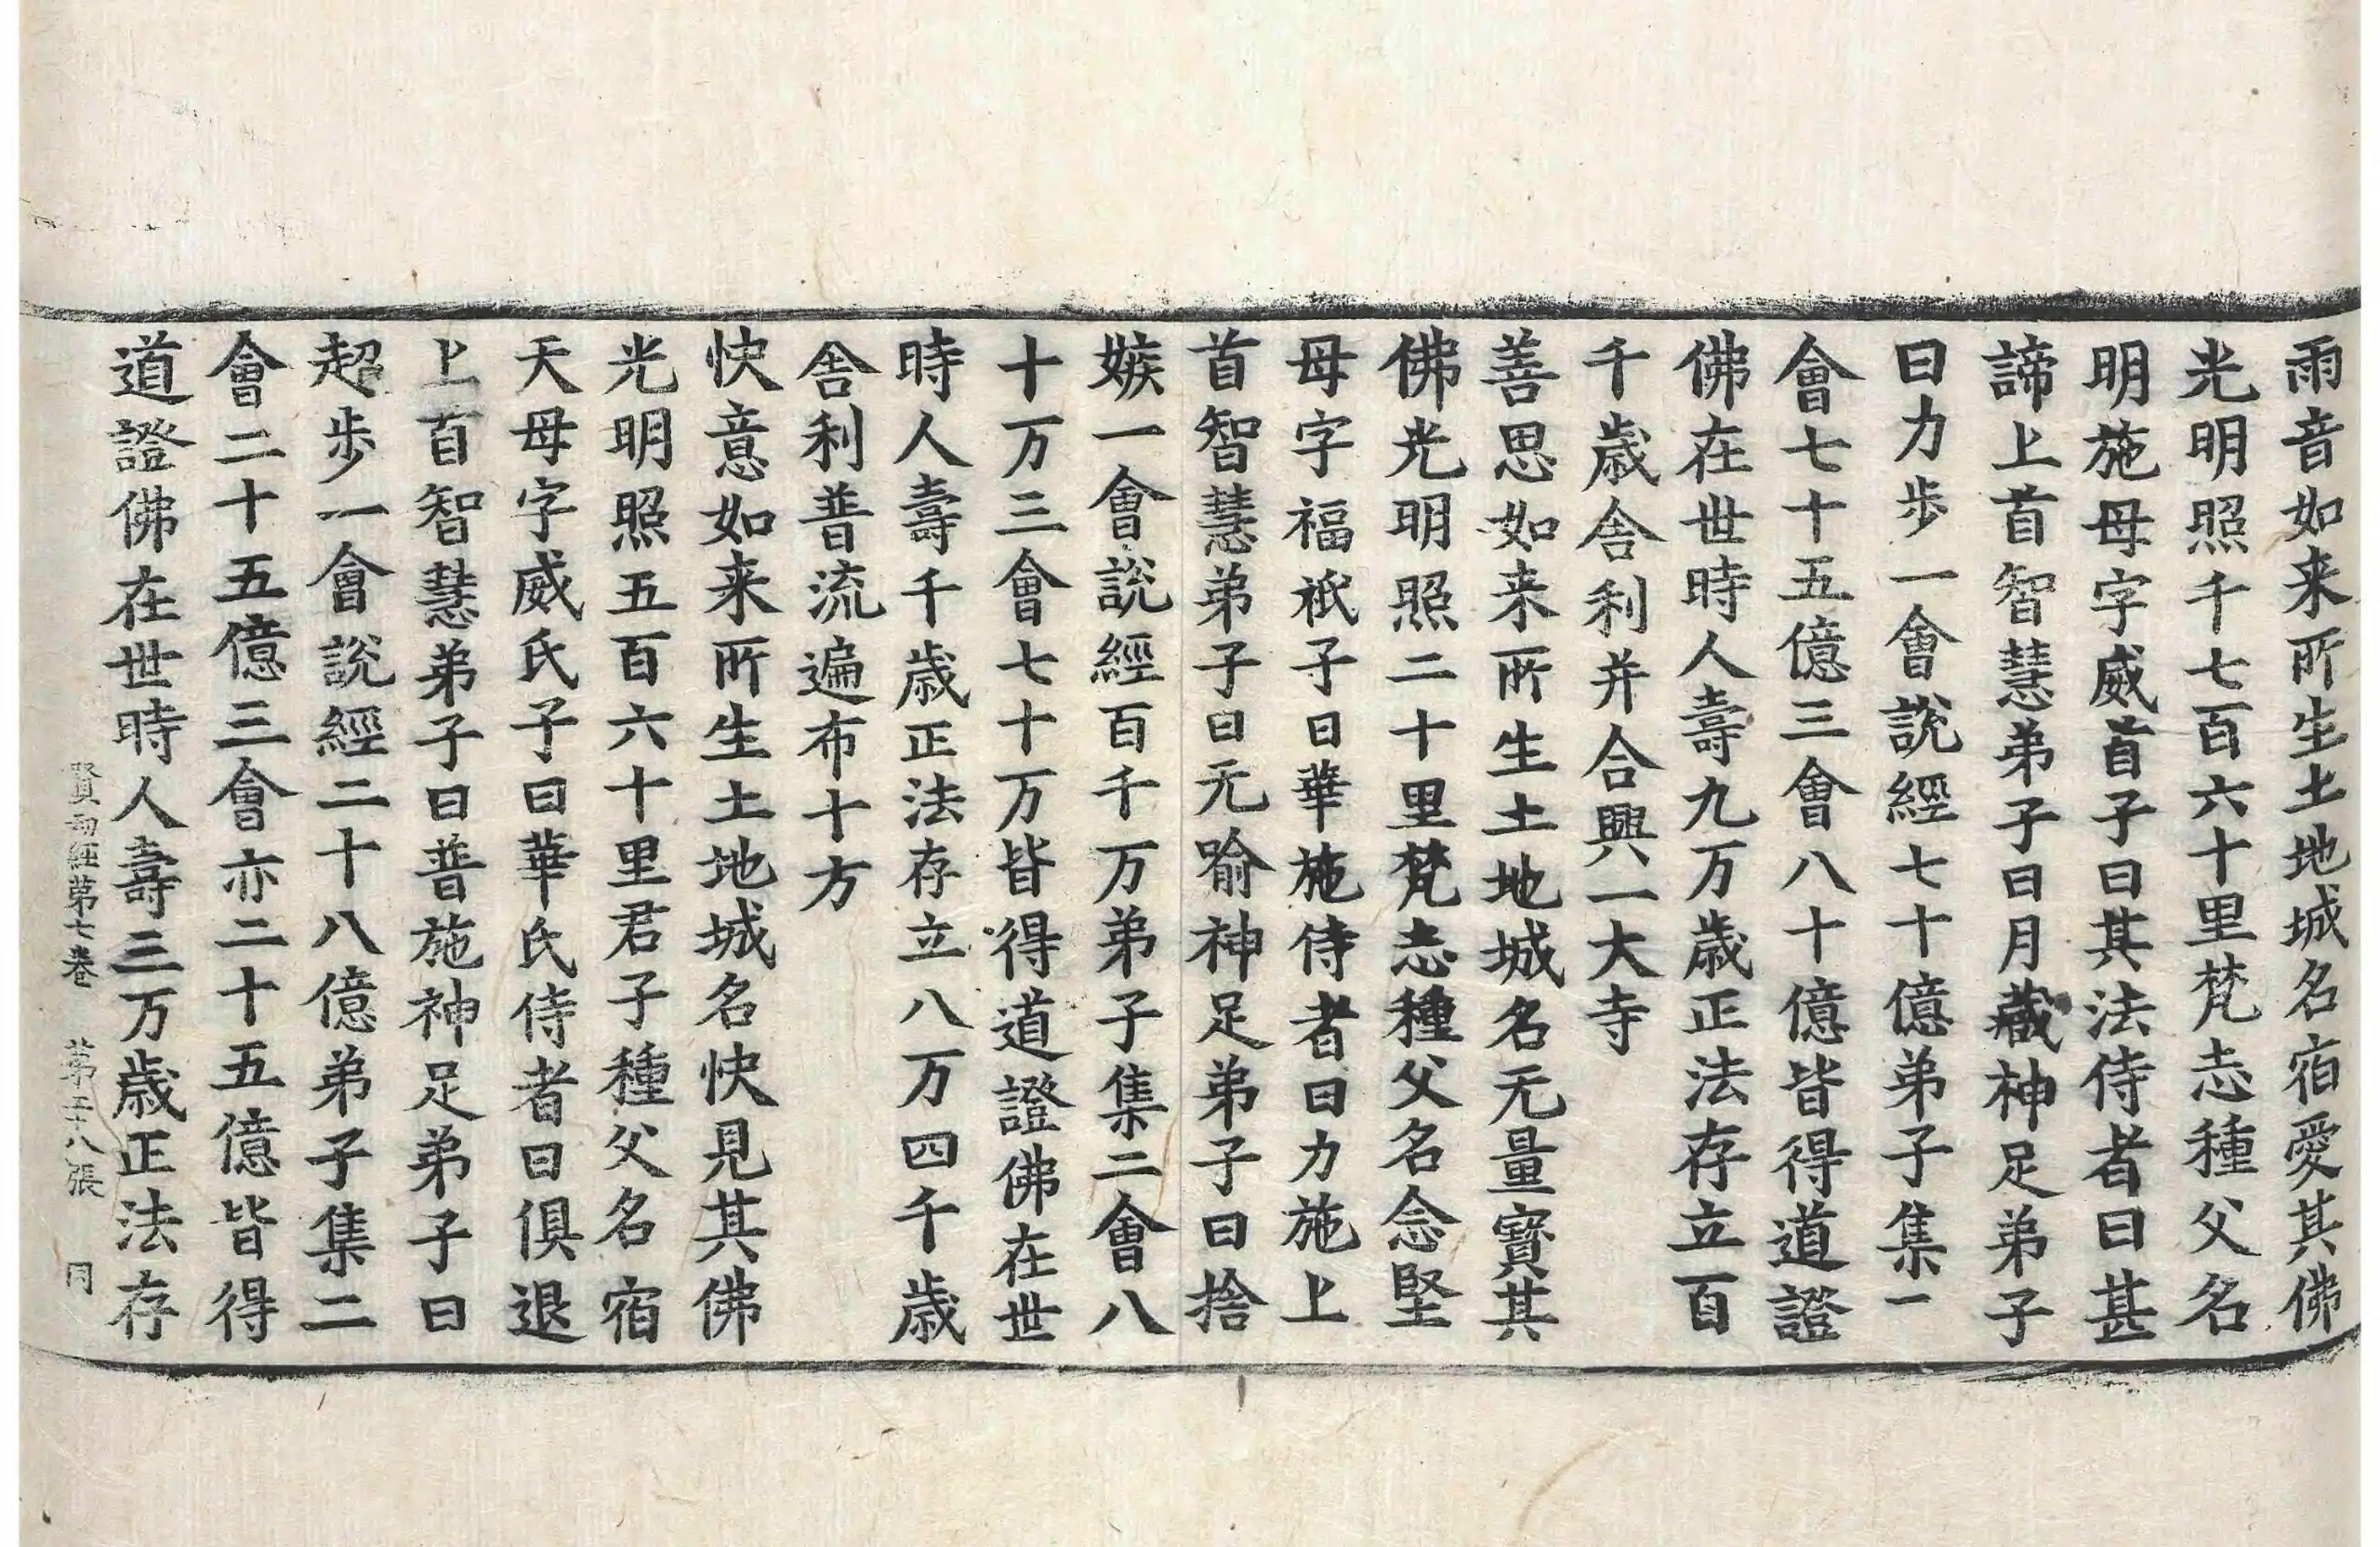 雨音如来所生土地城名宿愛其佛
光明照千七百六十里梵志種父名
明施母字威首子曰其法侍者曰甚
諦上首智慧弟子曰月藏神足弟子
曰力步一會說經七十億弟子集一
會七十五億三會八十億皆得道證
佛在世時人壽九万歲正法存立百
千歲舍利并合興一大寺
善思如来所生土地城名无量寶其
佛光明照二十里梵志種父名念堅
母字福祇子曰華施侍者曰力施上
首智慧弟子曰元喻神足弟子曰捨
嫉一會說經百千万弟子集二會八
十万三會七十万皆得道證佛在世
時人壽千歲正法存立八万四千歲
舍利普流遍布十方
快意如来所生土地城名快見其佛
光明照五百六十里君子種父名宿
天母字威氏子曰華氏侍者曰俱退
上首智慧弟子曰普施神足弟子曰
超步一會說經二十八億弟子集二
會二十五億三會亦二十五億皆得
道證佛在世時人壽三万歲正法存
賢劫經第七卷 第二十八張 同